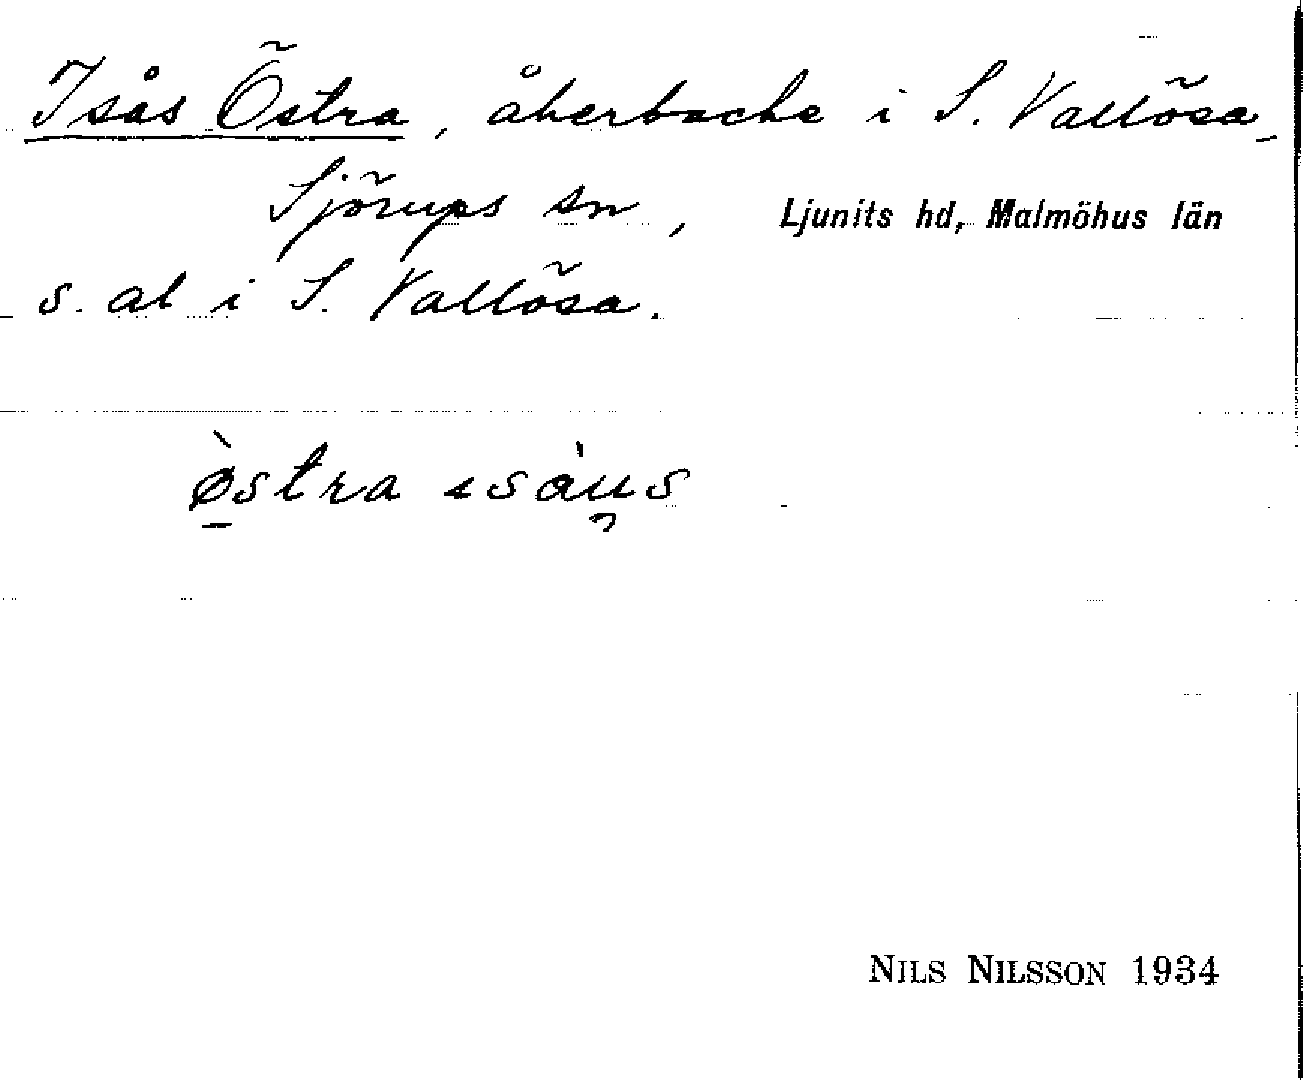 Isås Östra, åkerbacke i S. Vallösa,
Sjörups sn, Ljunits hd, Malmöhus län
s. al i S. Vallösa.
ø̠̀stra ısàu̡s
NILS NILSSON 1934